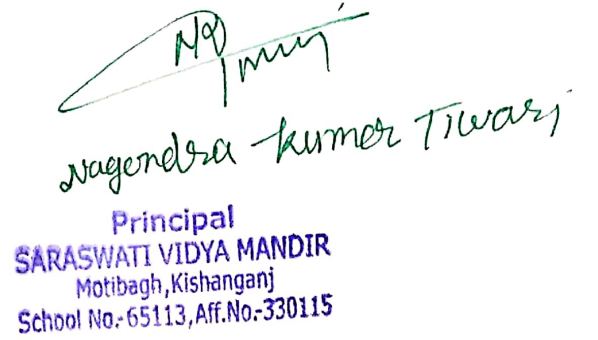 Nagendra Kumar Tiwari
Principal
SARASWATI VIDYA MANDIR
Motibagh,Kishanganj
School No.-65113,Aff.No.-330115